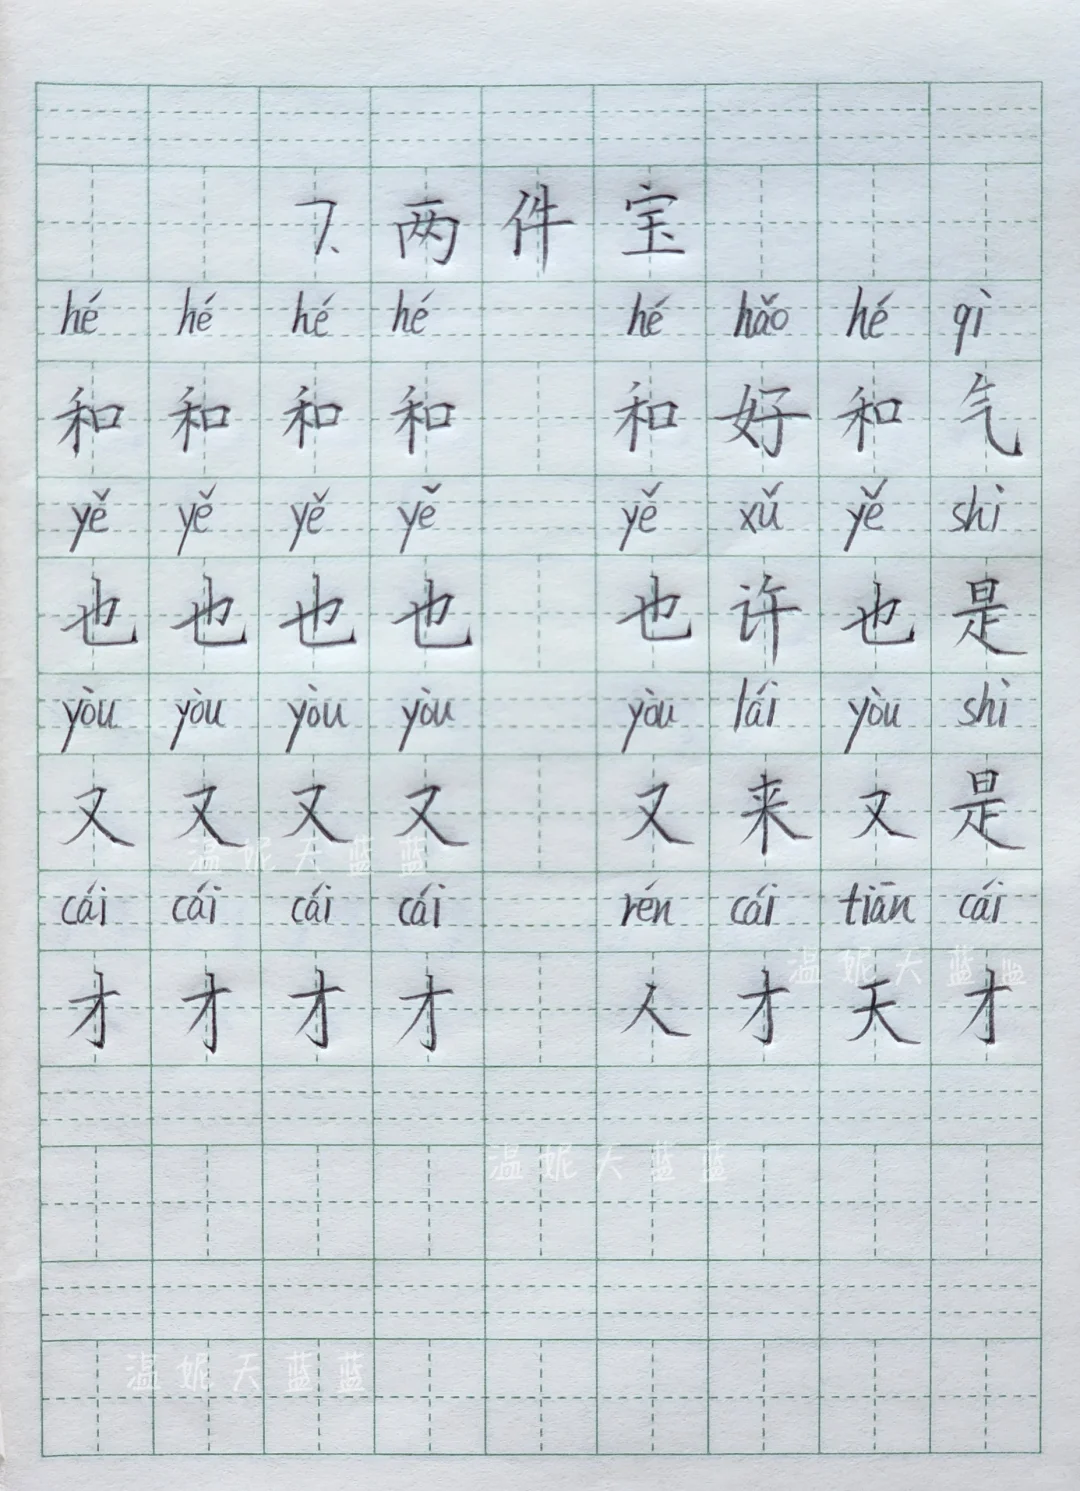 7.两件宝
hé hé hé hé hé hǎo hé qì
和 和 和 和 和 好 和 气
yě yě yě yě yě xǔ yě shì
也 也 也 也 也 许 也 是
yòu yòu yòu yòu yòu lái yòu shì
又 又 又 又 又 来 又 是
温妮天蓝蓝
cái cái cái cái rén cái tiān cái
温妮天蓝蓝
才 才 才 才 人 才 天 才
温妮天蓝蓝
温妮天蓝蓝